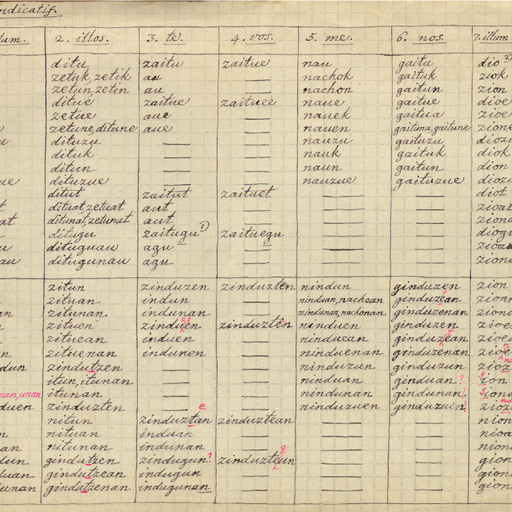 ndicatif.
lum. 2. illos. 3. te. 4. vos. 5. me. 6. nos. 7. illum
ditu zaitu zaitue nau gaitu dio
zetuk, zetik au nachok gaituk ziok
zetun, zetin au nachon gaitun zion
ditue zaitue zaituee naue gaitue dioe
zetue aue nauek gaitua zioe
zetune, ditune aue nauen gaituna, gaitune zione
dituzu nauzu gaituzu diozu
dituk nauk gaituk diok
ditun naun gaitun dion
ue dituzue nauzue gaituzue diozu
ditut zaitut zaituet diot
t dituat, zetuat aut zioat
at ditunat, zetunat aut ziona
ditugu zaitugu 1) zaituegu diogu
u dituguau agu zioa
au ditugunau agu ziona
zitun zinduzen zinduzten nindun ginduzen zion
zituan indun ninduan, nachoan ginduzean zioan
an zitunan indunan nindunan, nachonan ginduzenan ziona
zituen zinduen zinduzten ninduen ginduzen zioe
zituean induen ninduean ginduzean zioe
an zituenan indunen ninduenan ginduzenan zioe
dun zinduzten ninduzun ginduzun zioz
itun, itunan ninduan ginduan ? ion
uan, unan itunan nindunan gindunan ? iona
duen zinduzten ninduzuen ginduzuen ? zioz
nitun zinduztan zinduztean nion
n nituan induan nioa
n nitunan indunan niona
dun gindutzen zindugun ? zinduzteun gion
duan gindutzean indugun gioa
unan gindutzenan indugunan giona